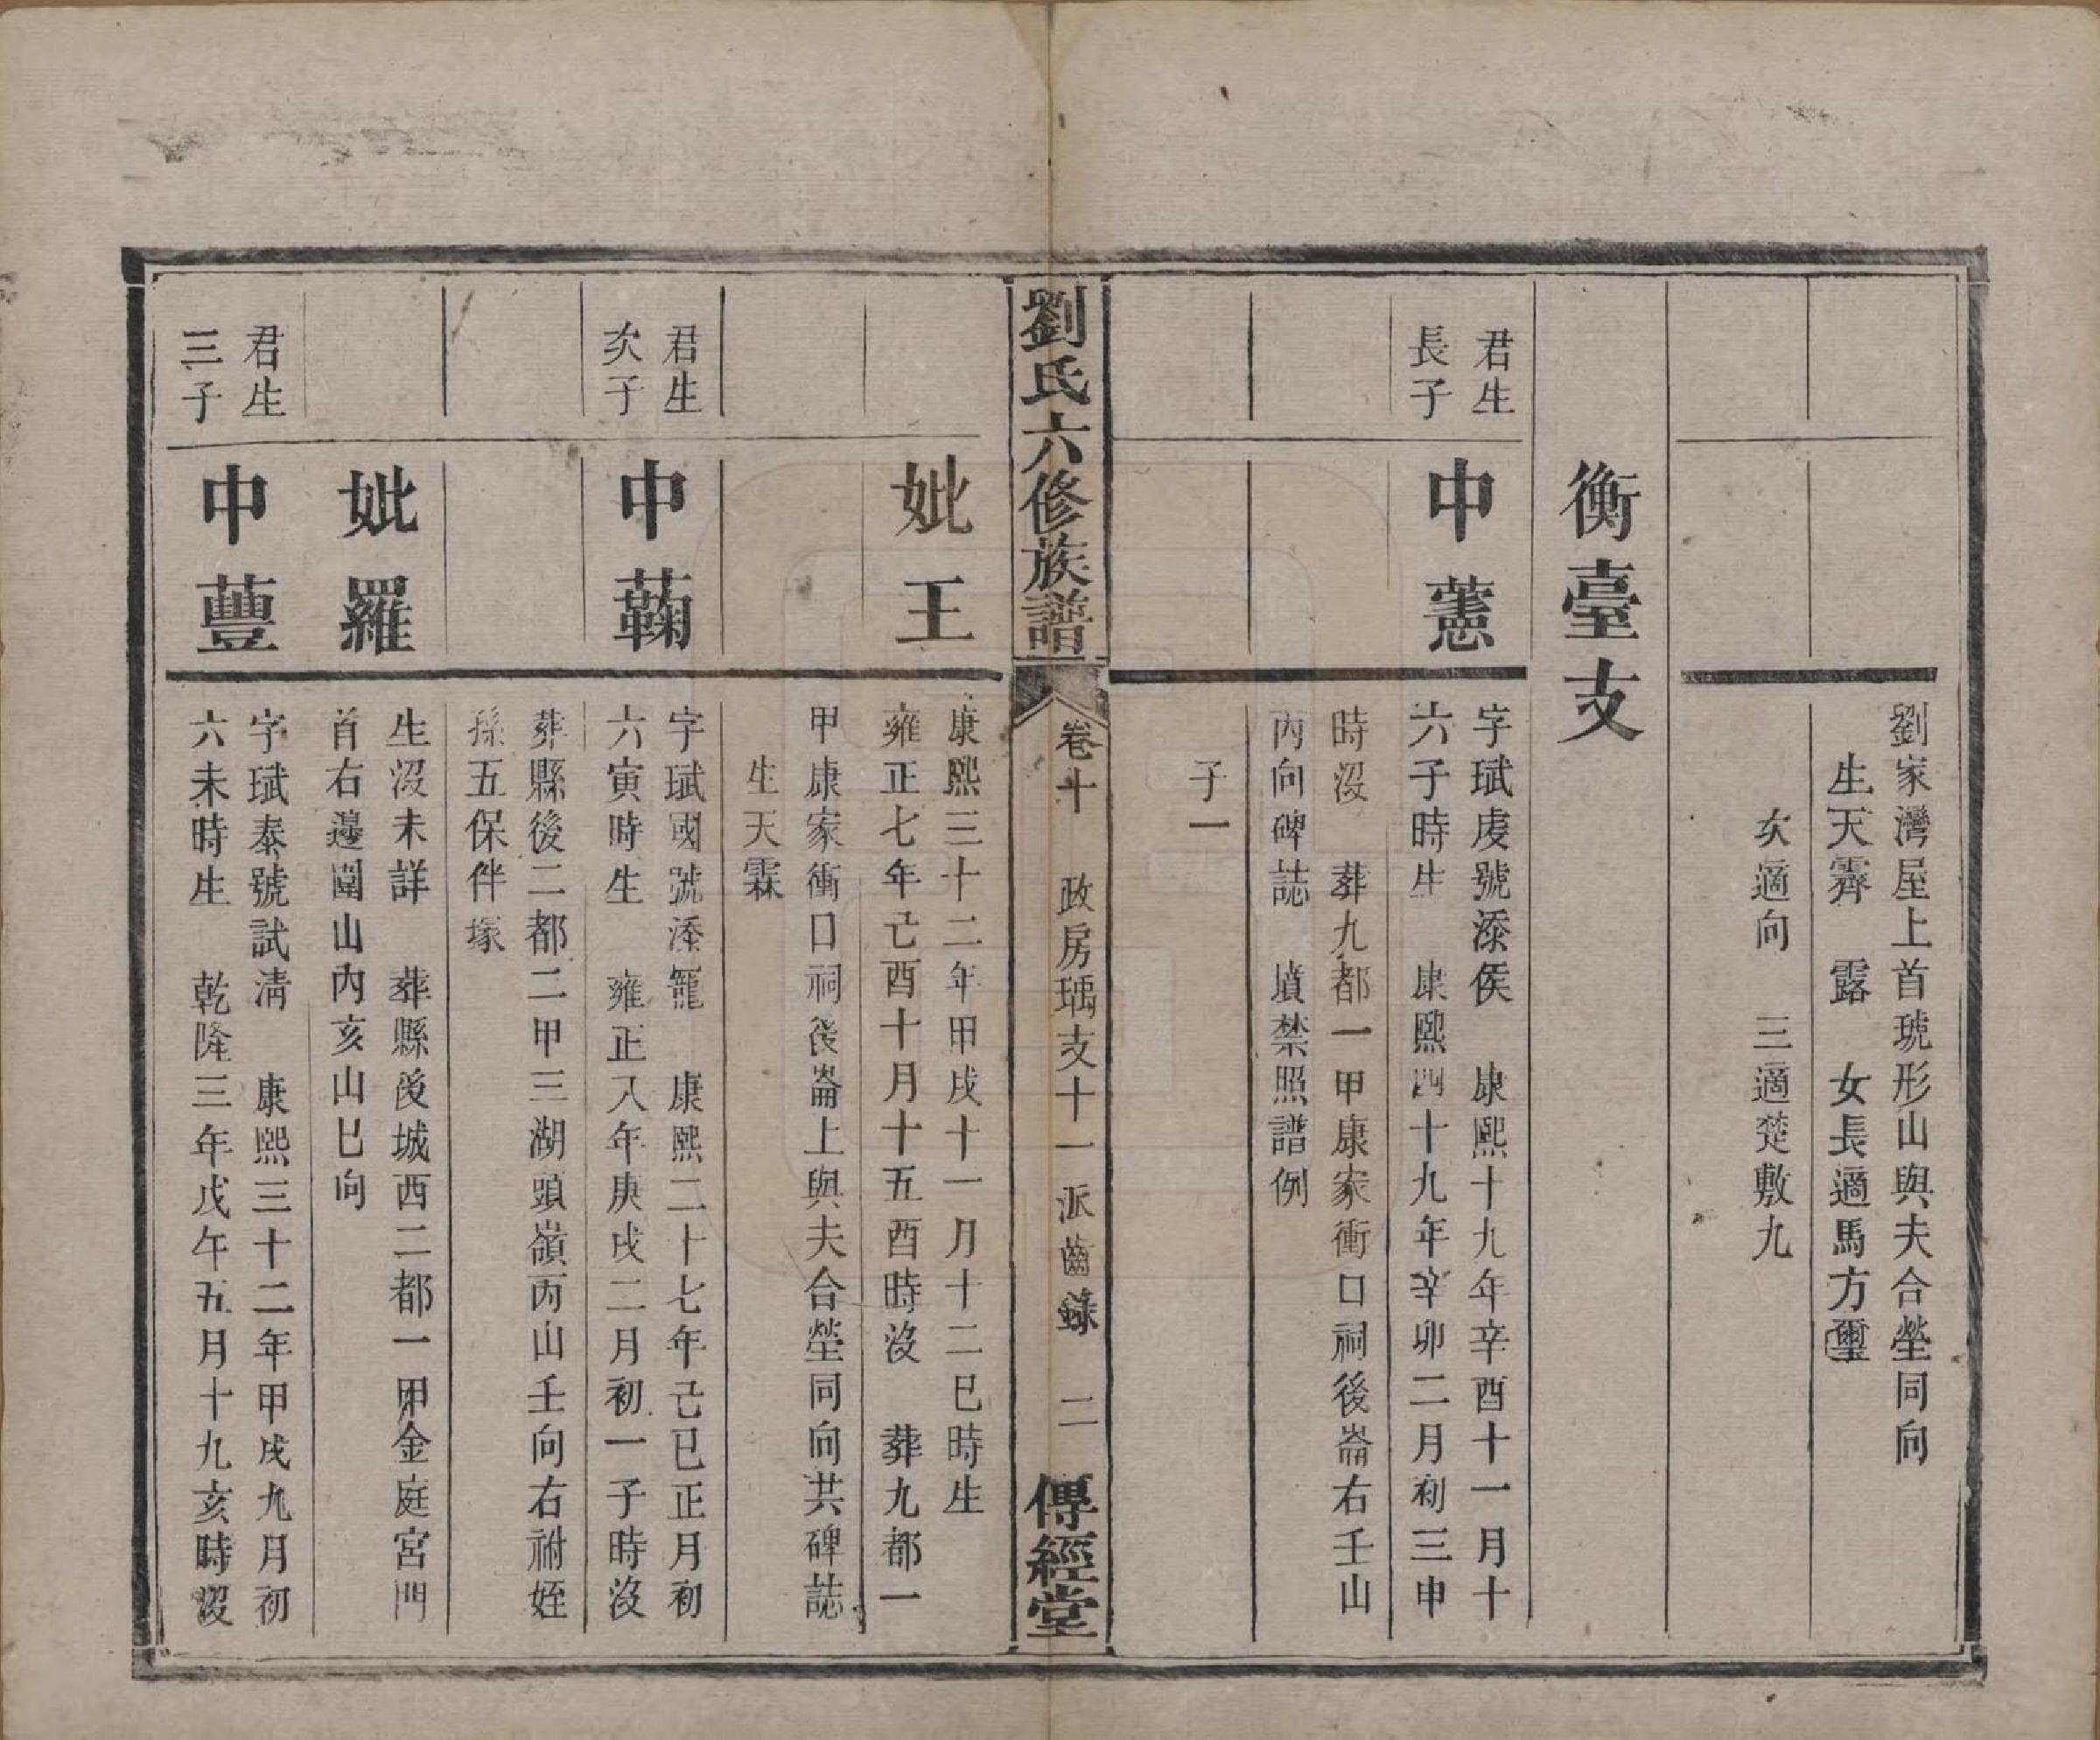 劉家灣屋上首琥形山與夫合塋同向
生天霽　露　女長適馬方璽
次適向　三適楚敷九
衡臺支
君生
長子
中藼
字珷虔號添侯　康熙十九年辛酉十一月十
六子時生　康熙四十九年辛卯二月初三申
時沒　葬九都一甲康家衝口祠後崙右壬山
丙向碑誌　墳禁照譜例
子一
劉氏六修族譜
卷十　政房瑀支十一派齒錄　二
傳經堂
妣王
康熙三十二年甲戌十一月十二巳時生
雍正七年己酉十月十五酉時沒　葬九都一
甲康家衝口祠後崙上與夫合塋同向共碑誌
生天霖
君生
次子
中蘜
字珷國號添寵　康熙二十七年己巳正月初
六寅時生　雍正八年庚戌二月初一子時沒
葬縣後二都二甲三湖頭嶺丙山壬向右祔姪
孫五保伴塚
妣羅
生沒未詳　葬縣後城西二都一甲金庭宮門
首右邊圍山內亥山巳向
君生
三子
中蘴
字珷泰號試清　康熙三十二年甲戌九月初
六未時生　乾隆三年戊午五月十九亥時沒